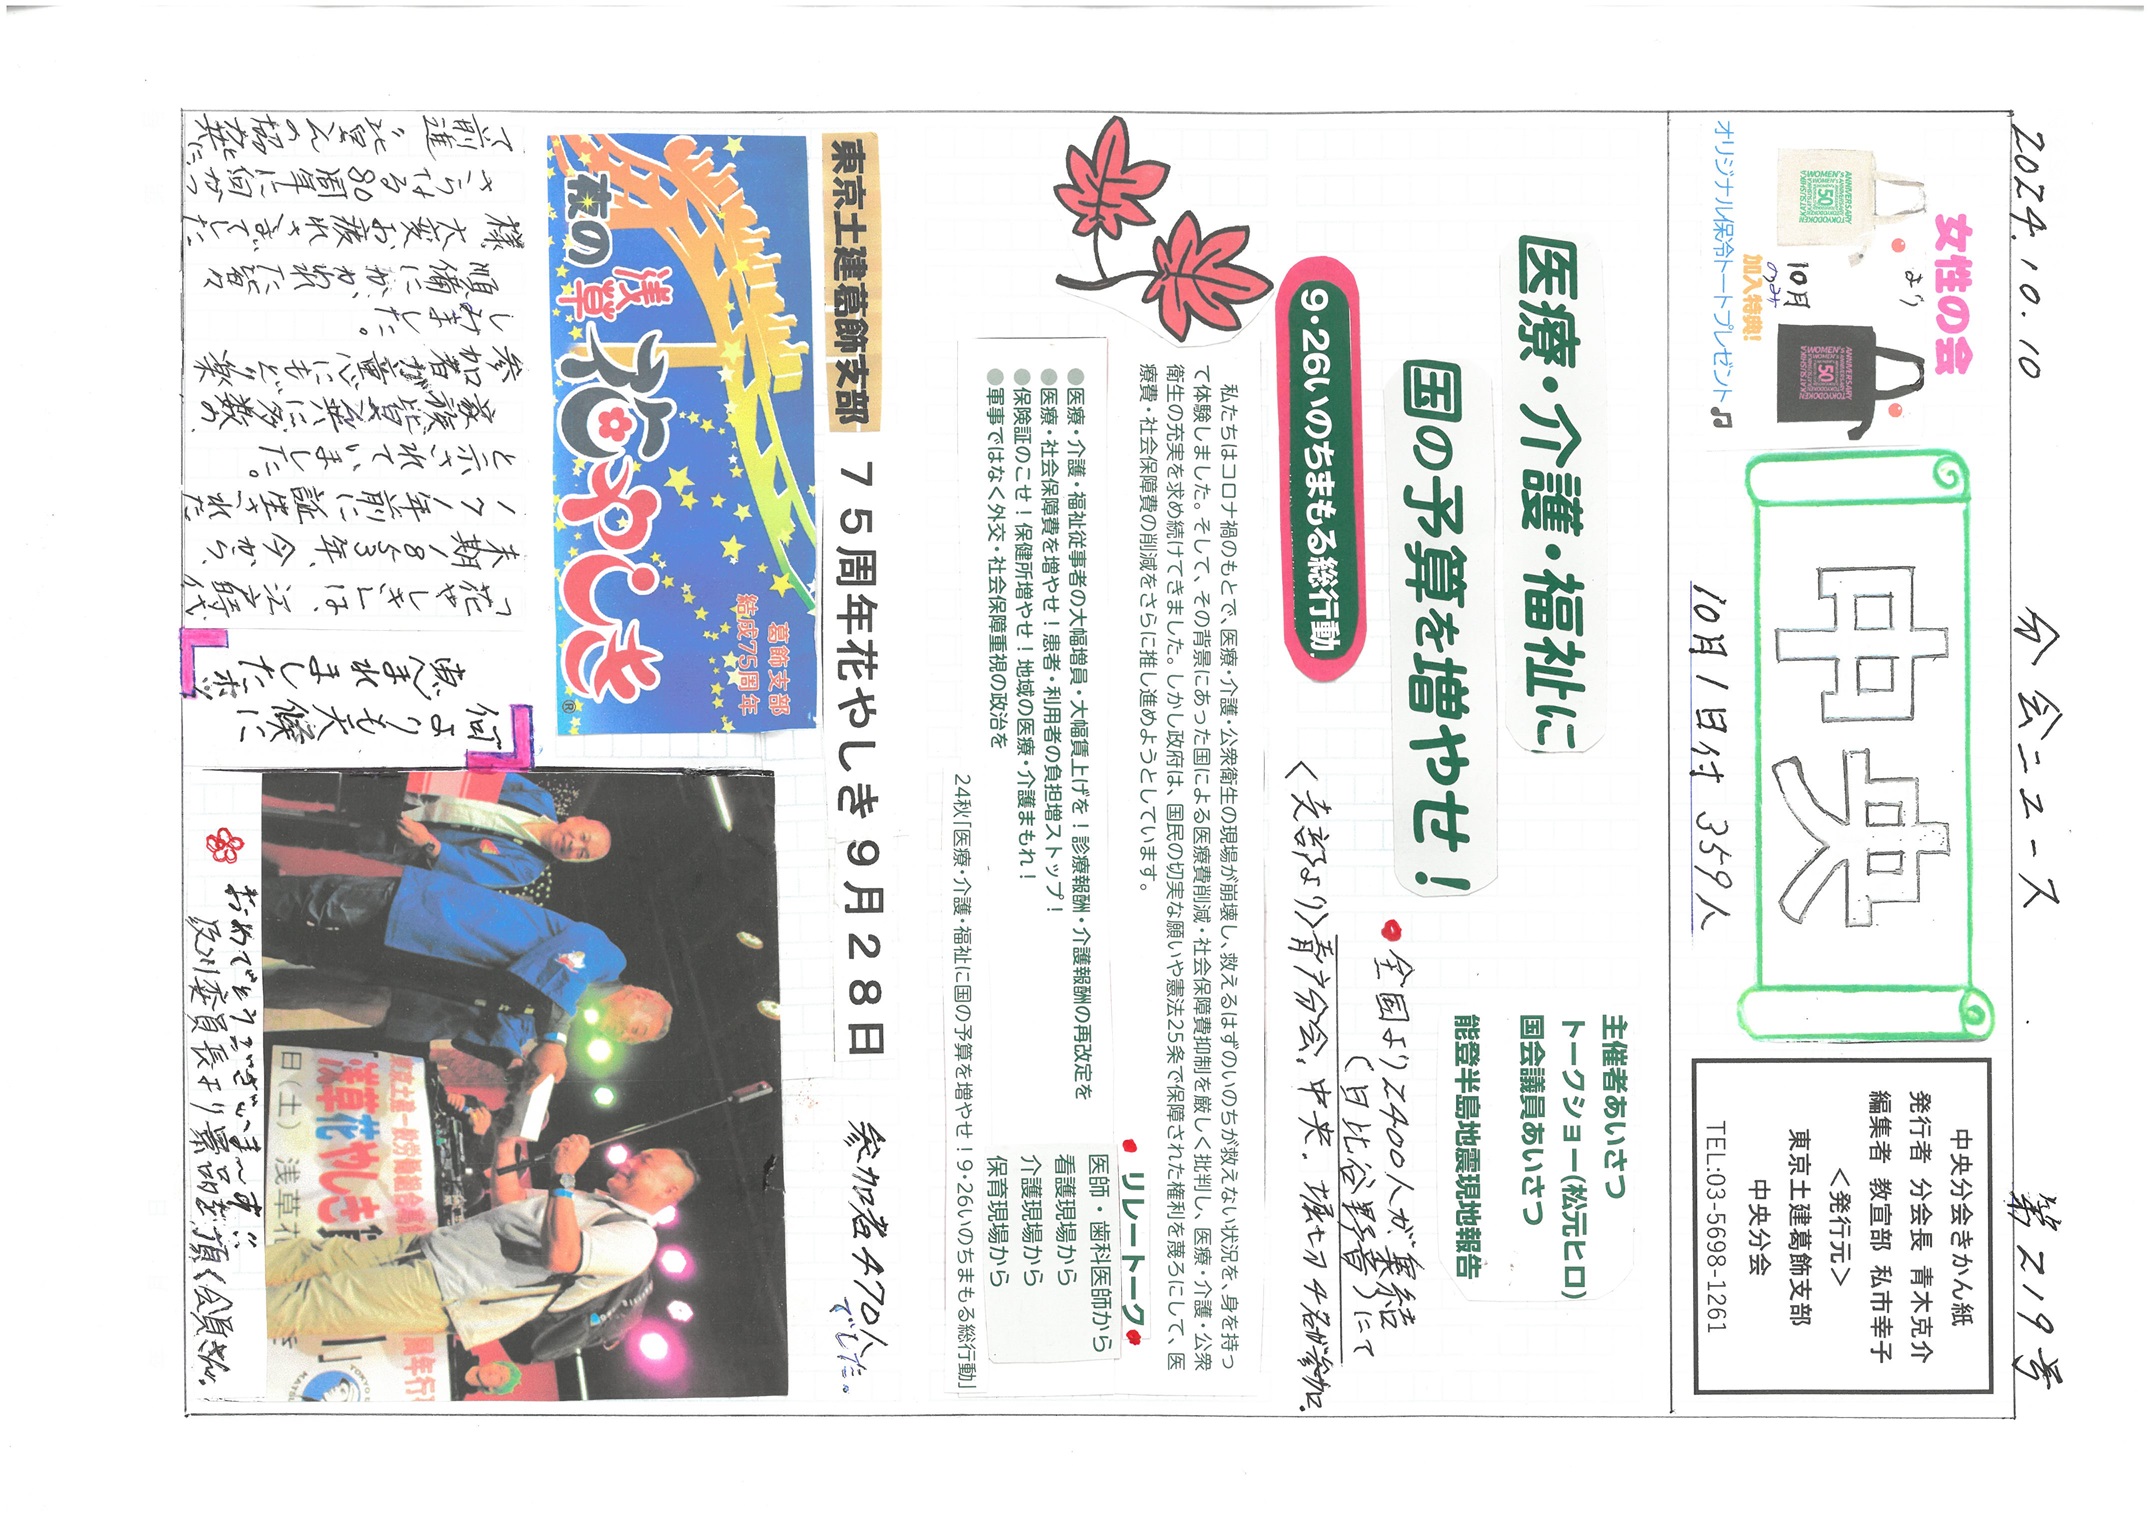 2024.10.10 分会ニュース 第219号
女性の会
より
10月
のみ
加入特典!
オリジナル保冷トートプレゼント♫
WOMEN'S
ANNIVERSARY
50
TOKYODOKEN
KATSUSHIKA
中央
10月1日付 359人
中央分会きかん紙
発行者 分会長 青木克介
編集者 教宣部 私市幸子
<発行元>
東京土建葛飾支部
中央分会
TEL:03-5698-1261
医療・介護・福祉に
国の予算を増やせ!
主催者あいさつ
トークショー(松元ヒロ)
国会議員あいさつ
能登半島地震現地報告
全国より2400人が集結
(日比谷野音)にて
9・26いのちまもる総行動
<支部より>青戸分会、中央、堀切 4名が参加.
私たちはコロナ禍のもとで、医療・介護・公衆衛生の現場が崩壊し、救えるはずのいのちが救えない状況を、身を持っ
て体験しました。そして、その背景にあった国による医療費削減・社会保障費抑制を厳しく批判し、医療・介護・公衆
衛生の充実を求め続けてきました。しかし政府は、国民の切実な願いや憲法25条で保障された権利を蔑ろにして、医
療費・社会保障費の削減をさらに推し進めようとしています。
●リレートーク●
●医療・介護・福祉従事者の大幅増員・大幅賃上げを!診療報酬・介護報酬の再改定を
●医療・社会保障費を増やせ!患者・利用者の負担増ストップ!
●保険証のこせ!保健所増やせ!地域の医療・介護まもれ!
●軍事ではなく外交・社会保障重視の政治を
医師・歯科医師から
看護現場から
介護現場から
保育現場から
24秋「医療・介護・福祉に国の予算を増やせ!9・26いのちまもる総行動」
東京土建葛飾支部 75周年花やしき9月28日 参加者470人
でした。
夜の
浅草
花やしき®
葛飾支部
結成75周年
何よりも天候に
恵まれました
「花やしき」は、江戸時代
末期1853年、今から、
171年前に誕生され
と示されていました。
家族皆一共に多数の
参加者が童心にもどり楽
しみました。
準備にかかわれた諸々
様、大変お疲れさまでした
さらなる80周年に向かっ
て前進
東京土建一般労働組合葛飾
浅草花やしき
日(土) 浅草花
周年行
おめでとうございま〜す
及川委員長より景品的を頂く会員さん。